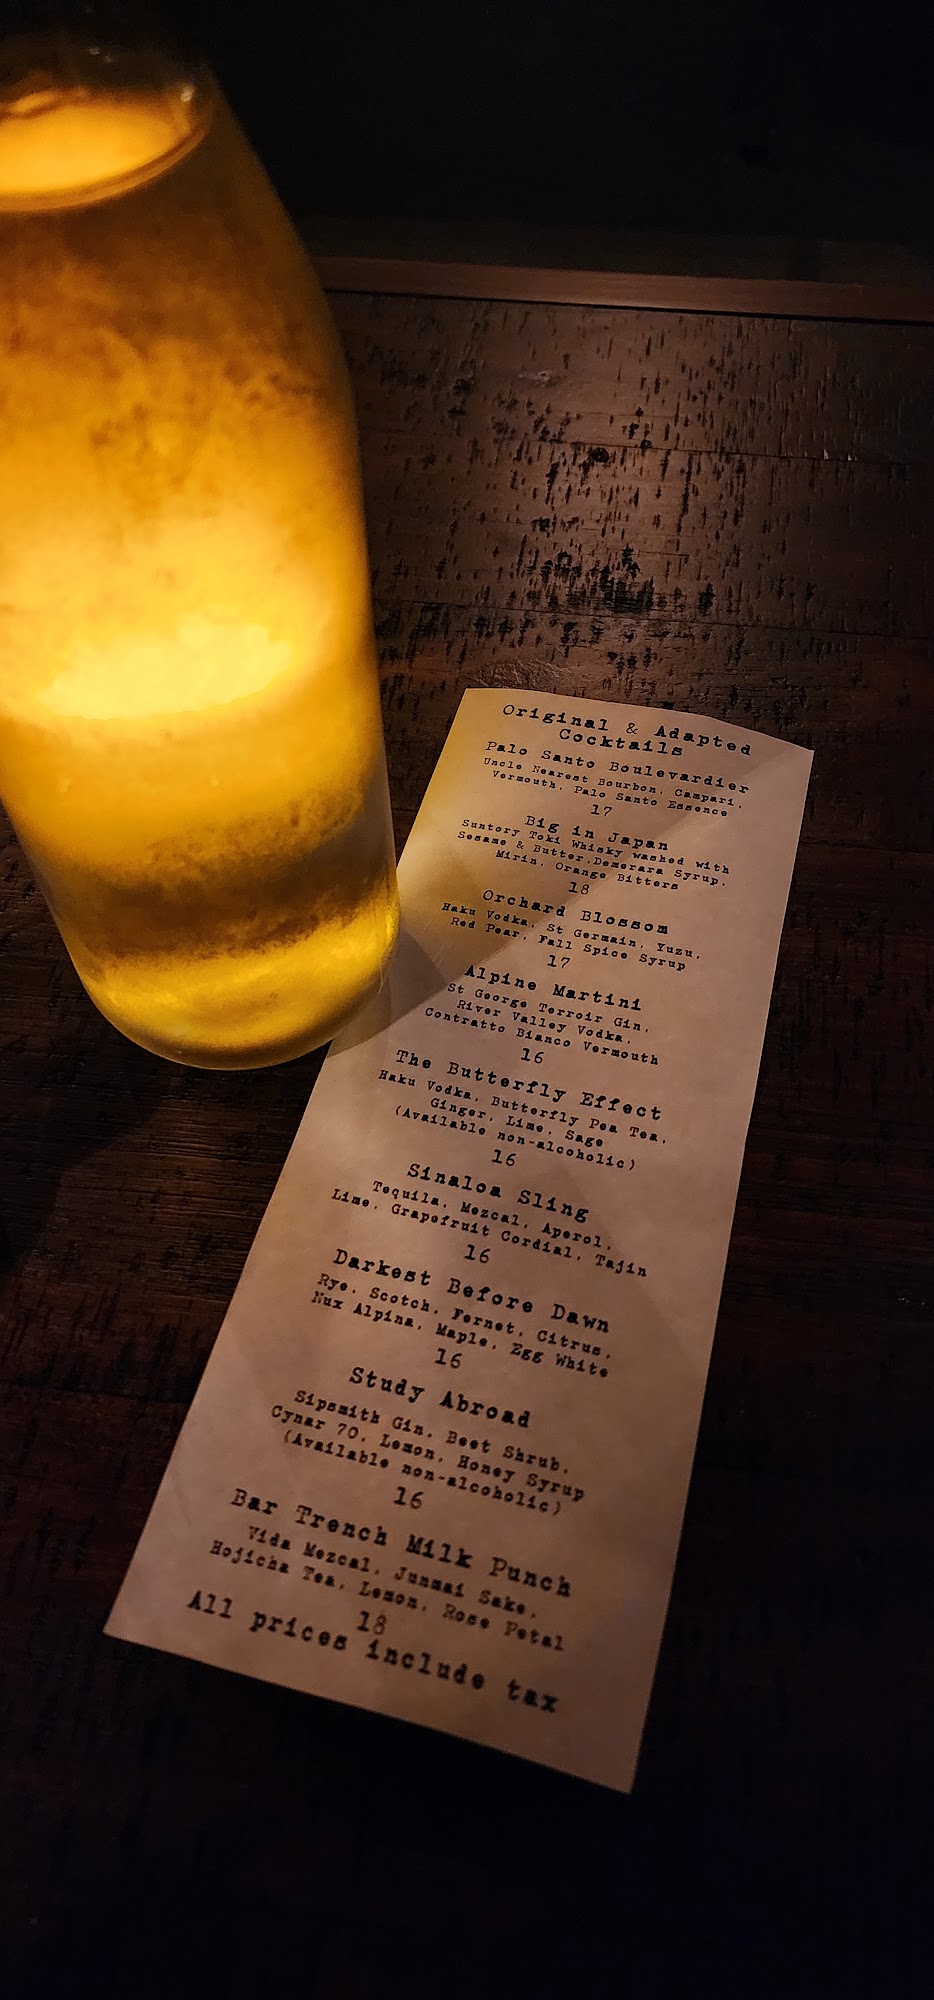 Original & Adapted
Cocktails
Palo Santo Boulevardier
Uncle Nearest Bourbon, Campari,
Vermouth, Palo Santo Essence
17
Big in Japan
Suntory Toki Whisky washed with
Sesame & Butter,Demerara Syrup,
Mirin, Orange Bitters
18
Orchard Blossom
Haku Vodka, St Germain, Yuzu,
Red Pear, Fall Spice Syrup
17
Alpine Martini
St George Terroir Gin,
River Valley Vodka,
Contratto Bianco Vermouth
16
The Butterfly Effect
Haku Vodka, Butterfly Pea Tea,
Ginger, Lime, Sage
(Available non-alcoholic)
16
Sinaloa Sling
Tequila, Mezcal, Aperol,
Lime, Grapefruit Cordial, Tajin
16
Darkest Before Dawn
Rye, Scotch, Fernet, Citrus,
Nux Alpina, Maple, Egg White
16
Study Abroad
Sipsmith Gin, Beet Shrub,
Cynar 70, Lemon, Honey Syrup
(Available non-alcoholic)
16
Bar Trench Milk Punch
Vida Mezcal, Junmai Sake,
Hojicha Tea, Lemon, Rose Petal
18
All prices include tax